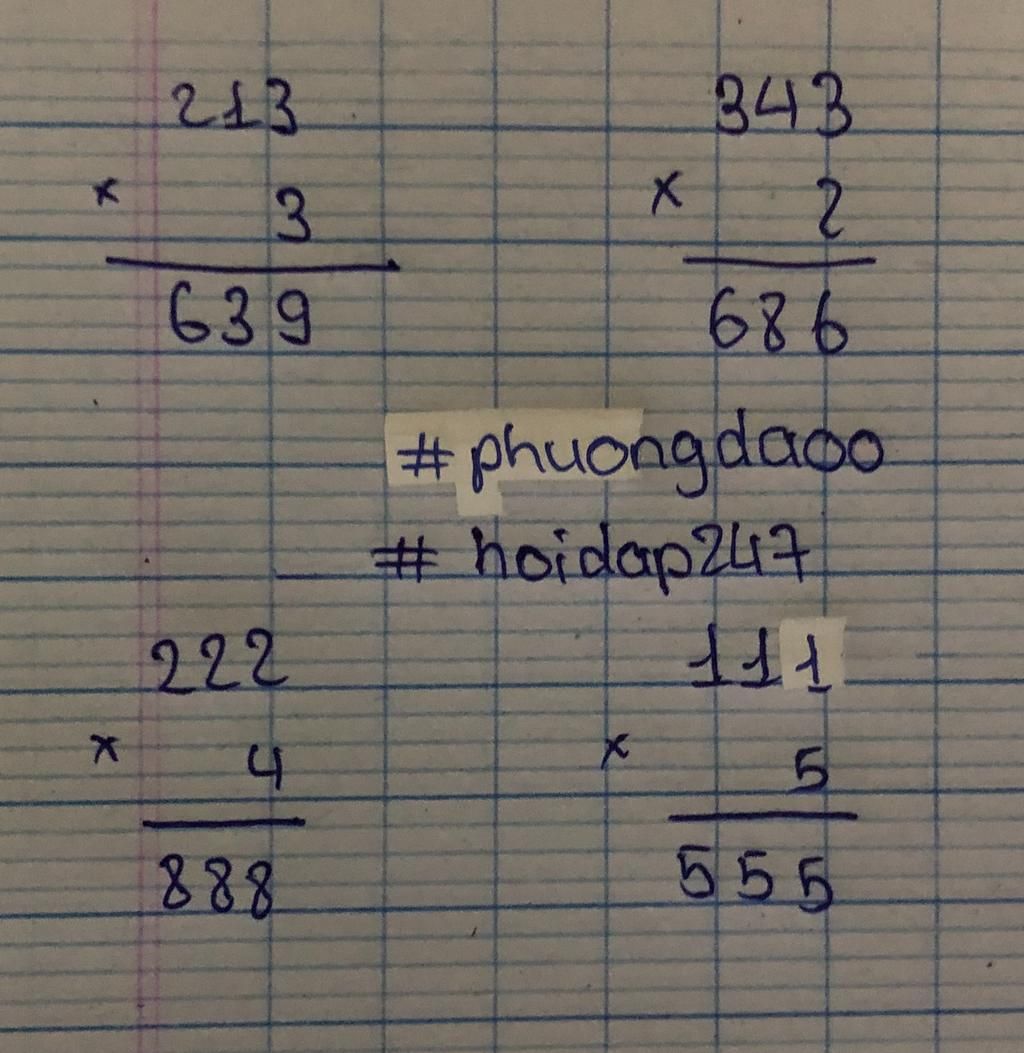 213 343
× 3 × 2
639 686
#phuongdaoo
# hoidap247
222 111
× 4 × 5
888 555